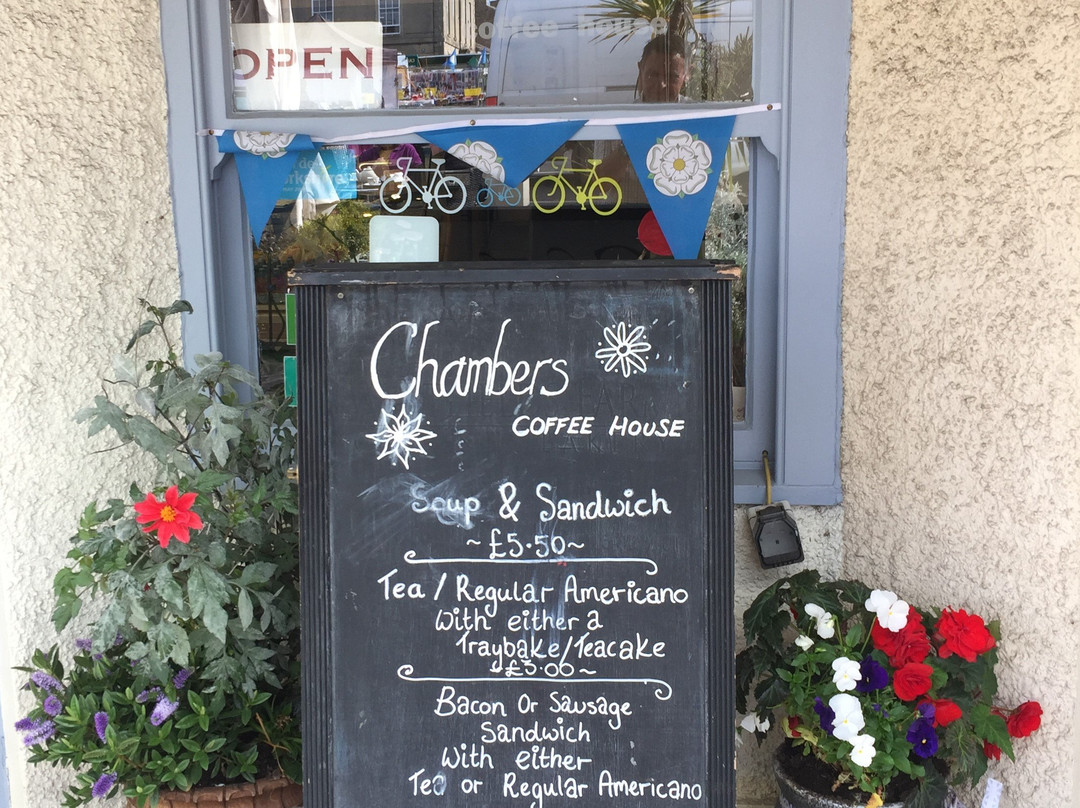 OPEN
coffee house
Chambers
COFFEE HOUSE
Soup & Sandwich
~£5.50~
Tea / Regular Americano
With either a
Traybake/Teacake
~£5.00~
Bacon Or Sausage
Sandwich
With either
Tea or Regular Americano